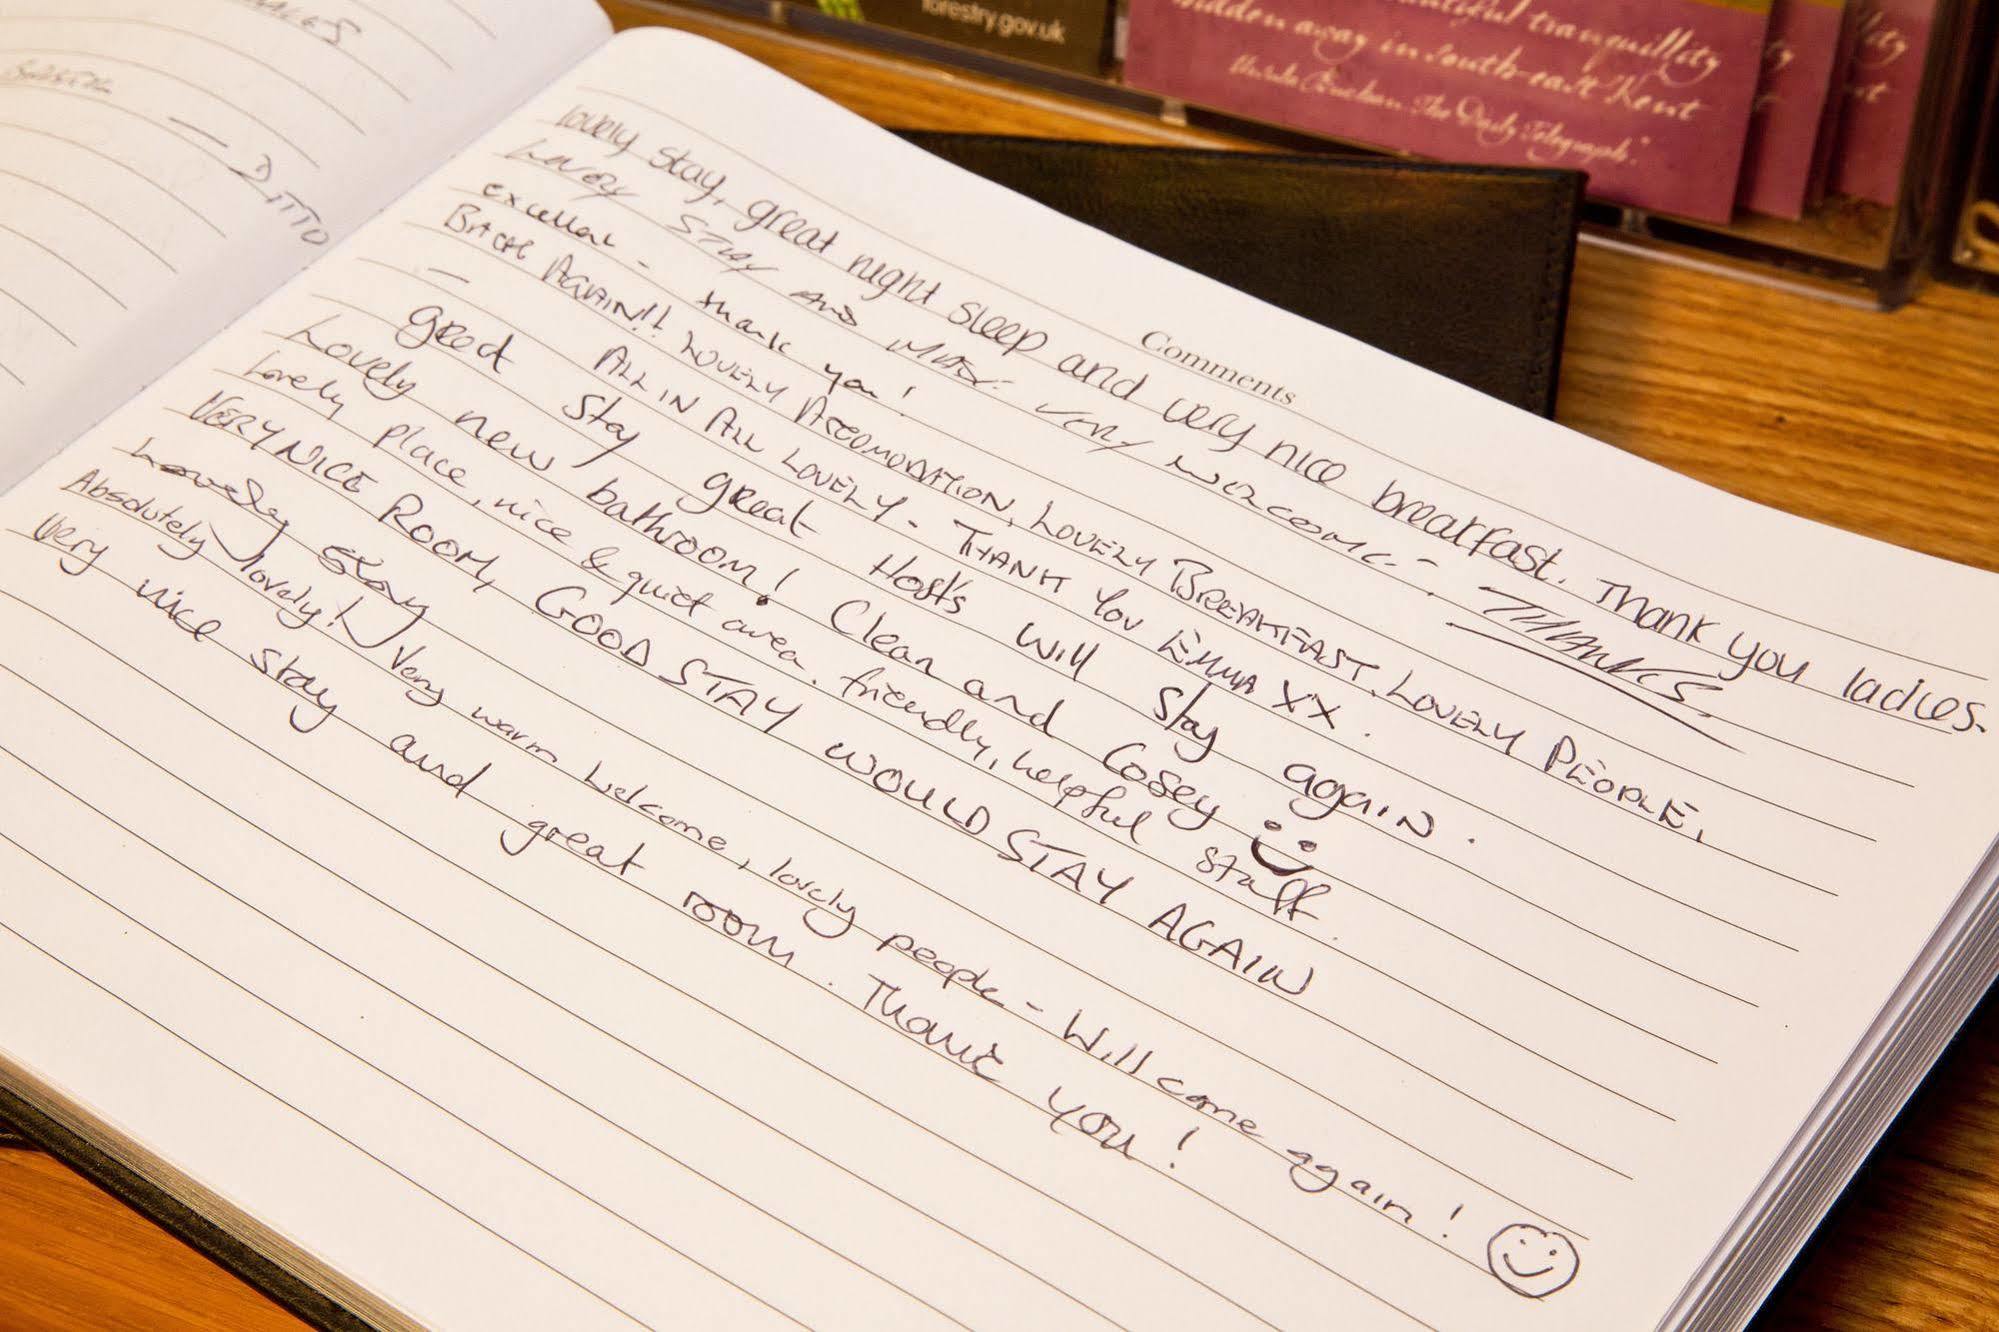 — DITTO
Comments
lovely stay, great night sleep and very nice breakfast. Thank you ladies.
Lovely STAY AND MEAL. VERY WELCOME - THANKS.
excellent - thank you!
BACK AGAIN!! LOVELY ACCOMODATION, LOVELY BREAKFAST, LOVELY PEOPLE,
— ALL IN ALL LOVELY - THANK YOU EMMA XX.
great Stay great Hosts will stay again.
Lovely new bathroom! Clean and Cosey
Lovely place, nice & quiet area. friendly, helpful staff.
VERY NICE ROOM, GOOD STAY WOULD STAY AGAIN
Lovely stay
Absolutely lovely! Very warm welcome, lovely people - Will come again!
Very nice stay and great room. Thank you!
forestry.gov.uk
beautiful tranquillity
hidden away in South-east Kent
The Daily Telegraph.